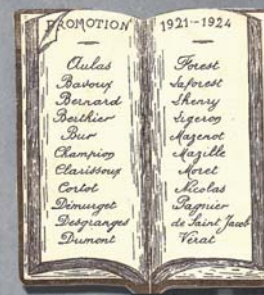 PROMOTION
Aulas
Bavoux
Bernard
Berthier
Bur
Champion
Clarissoux
Cortot
Dimurget
Desgranges
Dumont
1921-1924
Forest
Laforest
Lhenry
Ligeron
Mazenot
Mazille
Moret
Nicolas
Pagnier
de Saint Jacob
Vérat